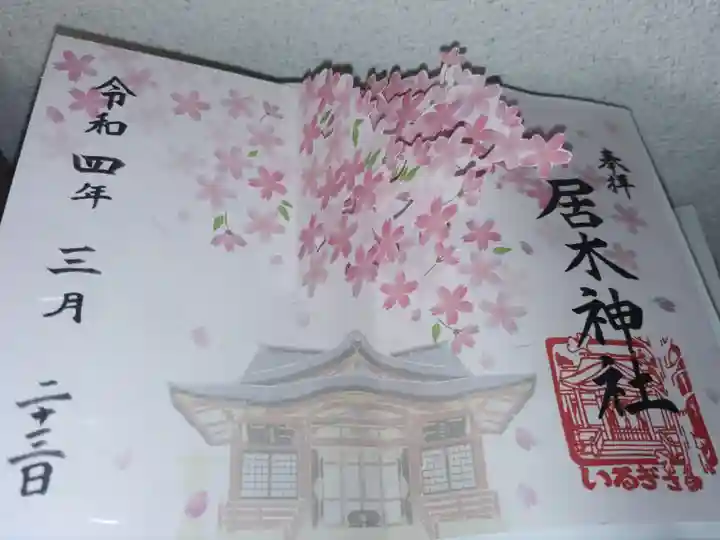 奉拝
居木神社
いるぎさま
令和四年
三月
二十三日